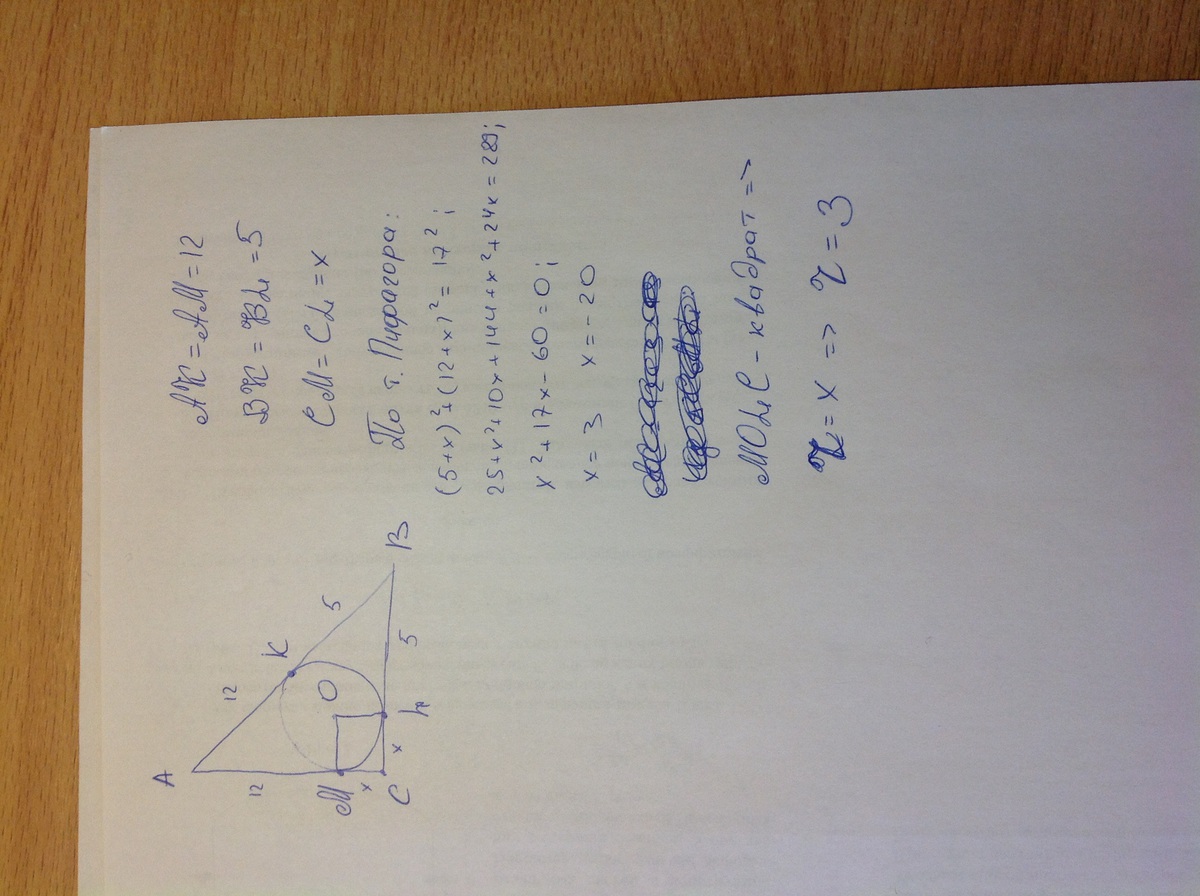 A
12
12
K
5
O
M
x
C
x
L
5
B
AK = AM = 12
BK = BL = 5
CM = CL = x
По т. Пифагора:
(5+x)²+(12+x)² = 17²;
25+x²+10x+144+x²+24x = 289;
x²+17x-60=0;
x = 3 x = -20
MOLC - квадрат =>
r = x => r = 3